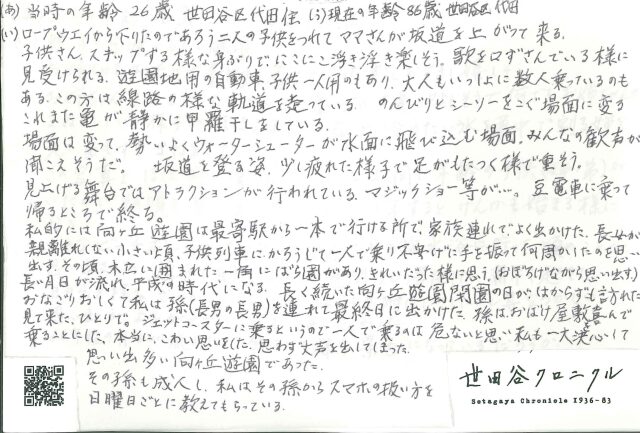 (あ) 当時の年齢 26歳 世田谷区代田住 (う)現在の年齢86歳 世田谷区代田
(い) ロープウエイから下りたのであろう二人の子供をつれてママさんが坂道を上がって来る。
子供さん、スキップする様な身ぶりでにこにこ浮き浮き楽しそう。歌を口ずさんでいる様に
見受けられる。遊園地用の自動車、子供一人用のもあり、大人もいっしょに数人乗っているのも
ある。この方は線路の様な軌道を走っている。 のんびりとシーソーをこぐ場面に変る
これまた亀が静かに甲羅干しをしている。
場面は変って、勢いよくウォーターシューターが水面に飛び込む場面。みんなの歓声が
聞こえそうだ。 坂道を登る姿、少し疲れた様子で足がもたつく様で重そう。
見上げる舞台ではアトラクションが行われている。マジックショー等が…。豆電車に乗って
帰るところで終る。
私的には向ヶ丘遊園は最寄駅から一本で行ける所で家族連れでよく出かけた。長女が
親離れしない小さい頃、子供列車に、かろうじて一人で乗り不安げに手を振って何周かしたのを思い
出す。その頃、木立に囲まれた一角にばら園があり、きれいだった様に思う。(おぼろげながら思い出す)
長い月日が流れ、平成の時代になる。長く続いた向ヶ丘遊園閉園の日が、はからずも訪れた
おなごりおしくて私は孫(長男の長男)を連れて最終日に出かけた。孫はおばけ屋敷喜んで
見て来た、ひとりで。ジェットコースターに乗るというので一人で乗るのは危ないと思い私も一大決心して
乗ることにした、本当に、こわい思いをした、思わず大声を出してしまった。
思い出多い向ヶ丘遊園であった。
その孫も成人し、私はその孫からスマホの扱い方を
日曜日ごとに教えてもらっている。
世田谷クロニクル
Setagaya Chronicle 1936-83